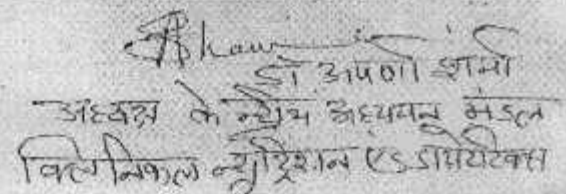 डॉ अपर्णा शर्मा
अध्यक्ष केन्द्रीय अध्ययन मंडल
क्लिनिकल न्युट्रिशन एंड डायटेटिक्स